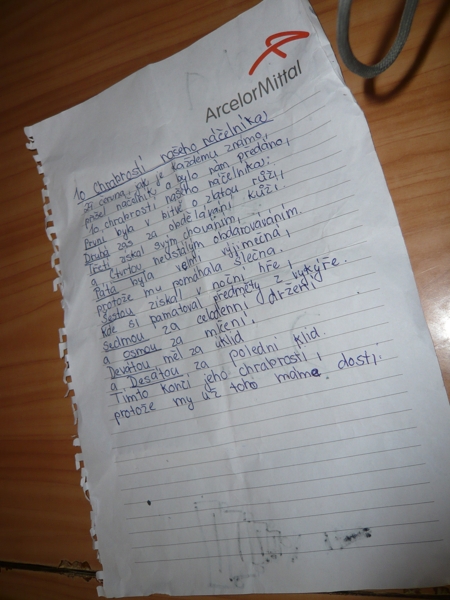 ArcelorMittal
10 chrabrostí našeho náčelníka
jak je každému známo,
náčelníky a bylo nám předáno,
10 chrabrostí našeho náčelníka:
První byla v bitvě o zlatou růži,
Druhá zas za obdělávání kůží.
Třetí získal svým chováním,
a čtvrtou nedstálým obdarováváním.
Pátá byla velmi vyjímečná,
protože mu pomáhala slečna.
Šestou získal v noční hře,
kde si pamatoval předměty z vykýře.
Sedmou za celodenní držení,
a osmou za mlčení.
Devátou měl za úklid
a Desátou za polední klid.
Tímto končí jeho chrabrosti,
protože my už toho máme dosti.